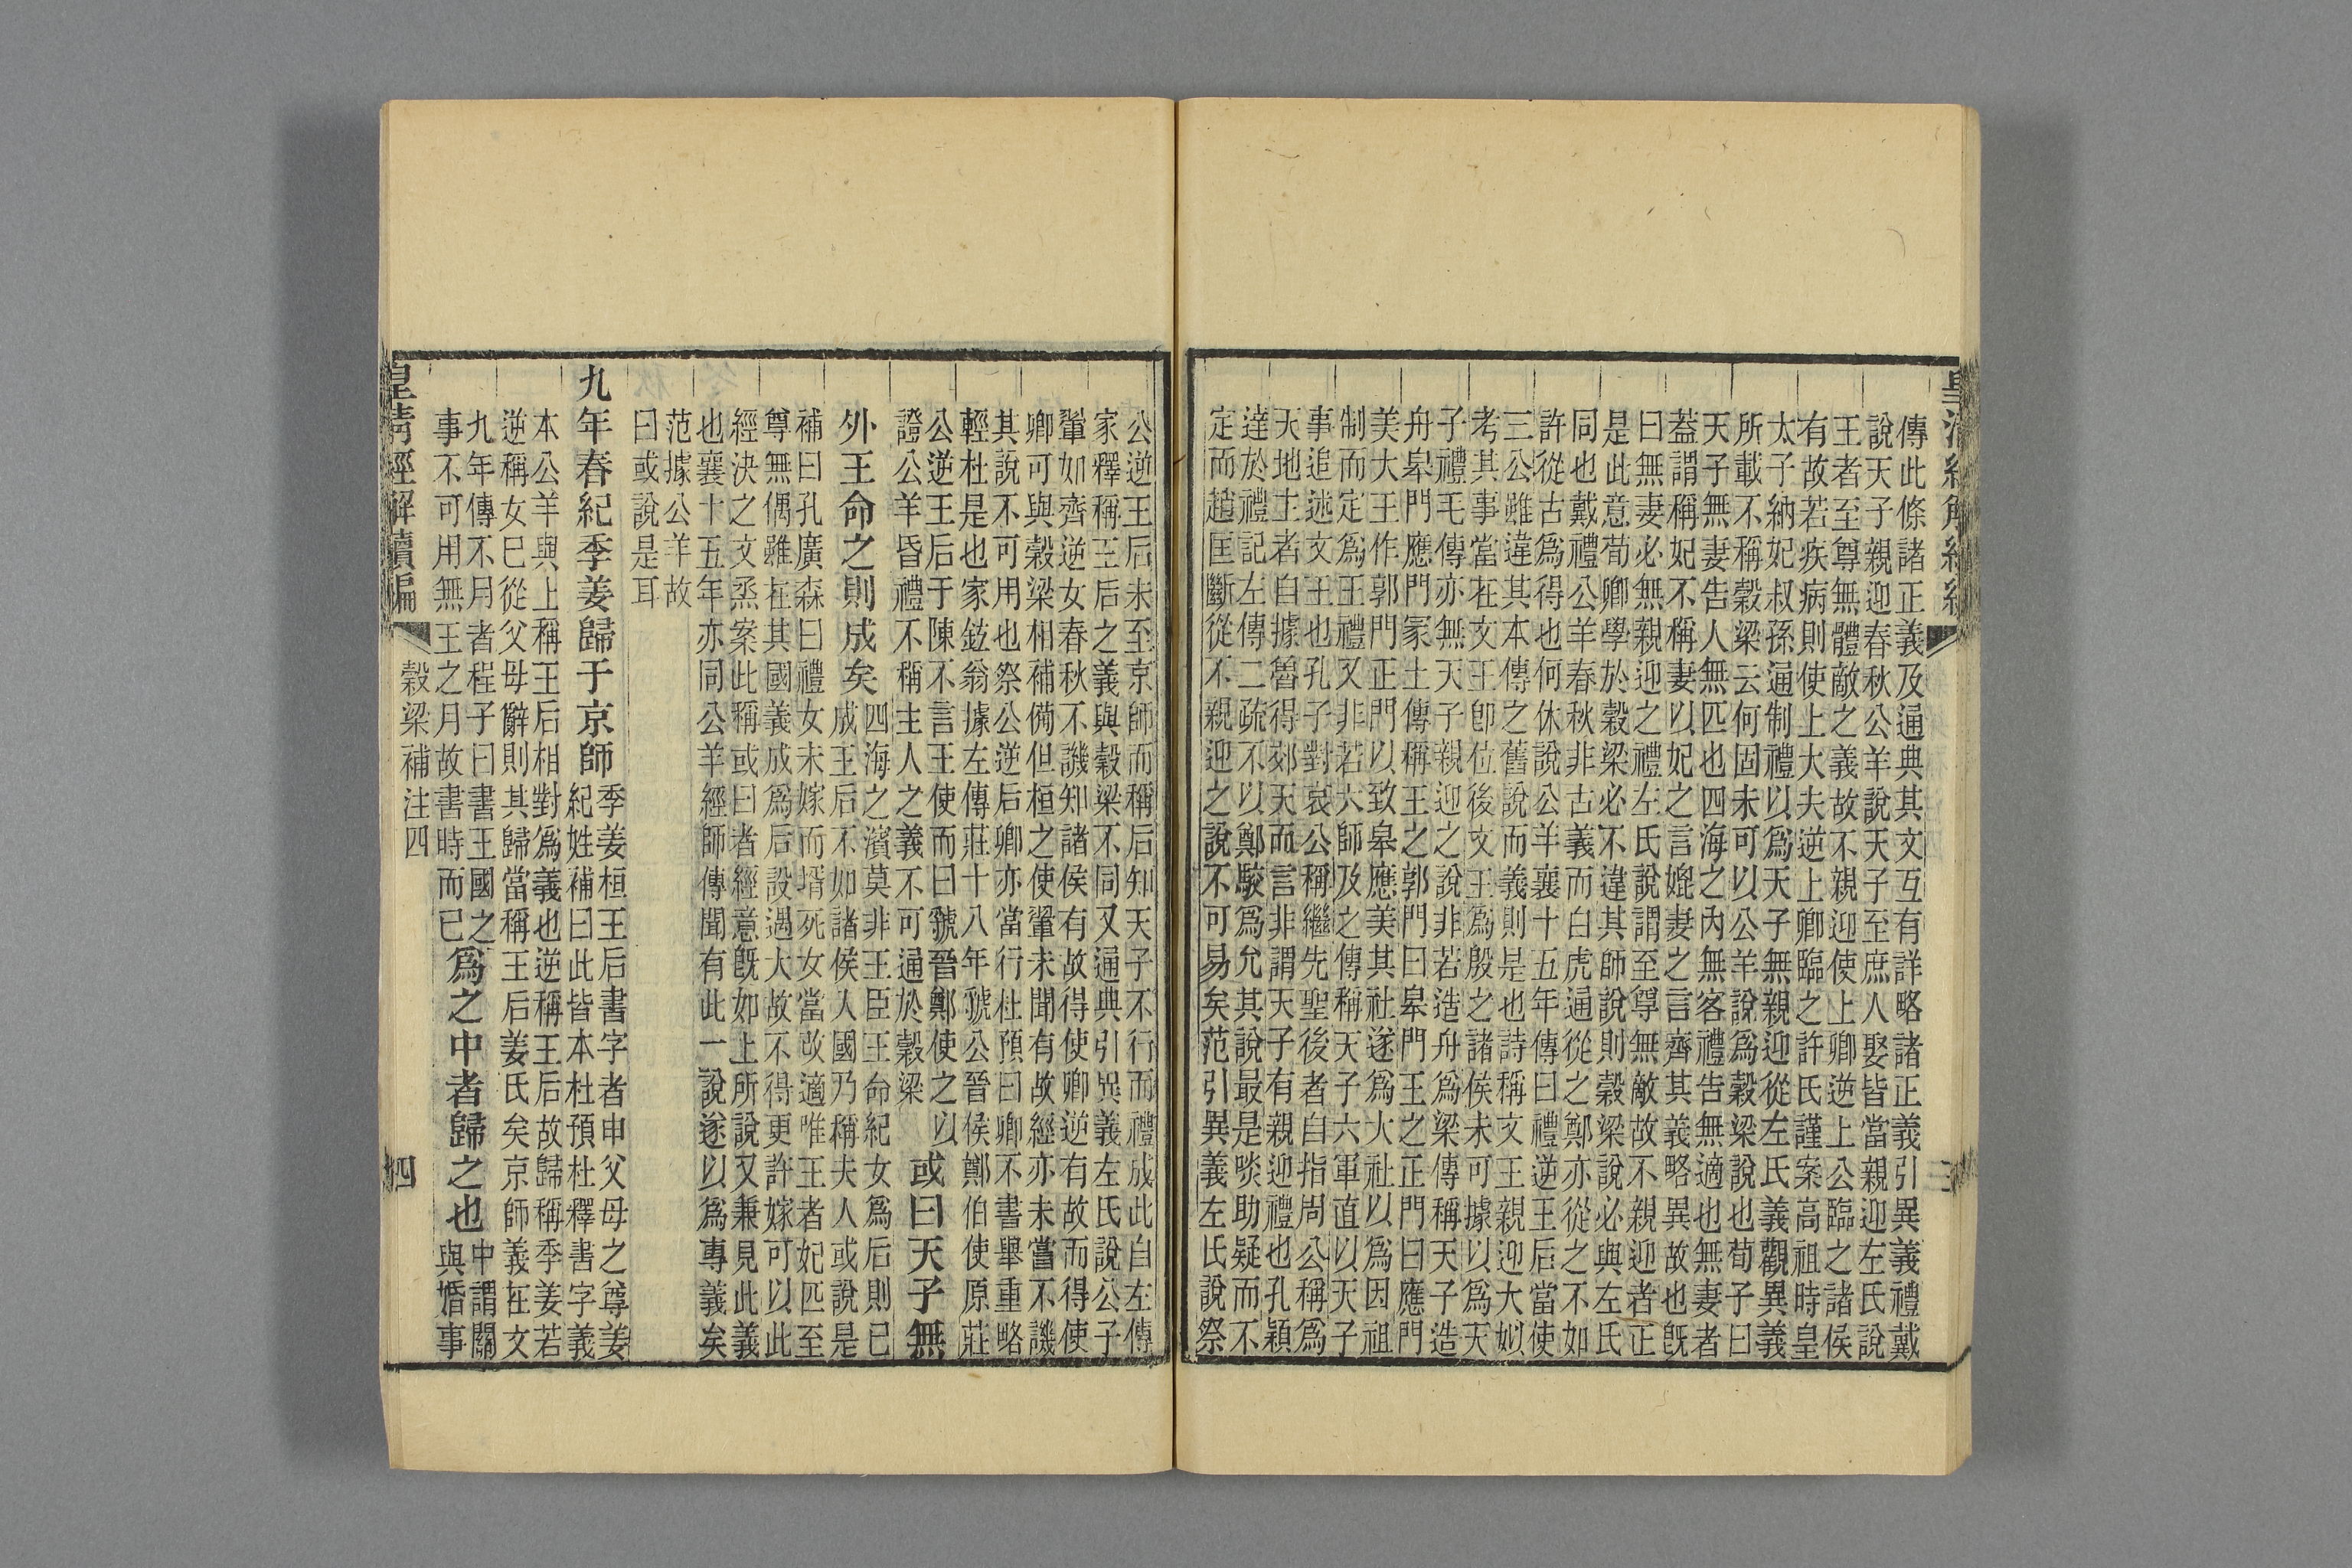 傳此條諸正義及通典其文互有詳略諸正義引異義禮戴
說天子親迎春秋公羊說天子至庶人娶皆當親迎左氏說
王者至尊無體敵之義故不親迎使上卿逆上公臨之諸侯
有故若疾病則使上大夫逆上卿臨之許氏謹案高祖時皇
太子納妃叔孫通制禮以爲天子無親迎從左氏義觀異義
所載不稱穀梁云何固未可以公羊說爲穀梁說也荀子曰
天子無妻告人無匹也四海之內無客禮告無適也無妻者
蓋謂稱妃不稱妻以妃之言媲妻之言齊其義略異故也旣
曰無妻必無親迎之禮左氏說謂至尊無敵故不親迎者正
是此意荀卿學於穀梁必不違其師說則穀梁說必與左氏
同也戴禮公羊春秋非古義而白虎通從之鄭亦從之不如
許從古爲得也何休說公羊襄十五年傳曰禮逆王后當使
三公雖違其本傳之舊說而義則是也詩稱文王親迎大姒
考其事當在文王卽位後文王爲殷之諸侯未可據以爲天
子禮毛傳亦無天子親迎之說非若造舟爲梁傳稱天子造
舟皋門應門冢土傳稱王之郭門曰皋門王之正門曰應門
美大王作郭門正門以致皋應美其社遂爲大社以爲因祖
制而定爲王禮又非若大師及之傳稱天子六軍直以天子
事追述文王也孔子對哀公稱繼先聖後者自指周公稱爲
天地主者自據魯得郊天而言非謂天子有親迎禮也孔穎
達於禮記左傳二疏不以鄭駮爲允其說最是啖助疑而不
定而趙匡斷從不親迎之說不可易矣范引異義左氏說祭
公逆王后未至京師而稱后知天子不行而禮成此自左傳
家釋稱王后之義與穀梁不同又通典引異義左氏說公子
翬如齊逆女春秋不譏知諸侯有故得使卿逆有故而得使
卿可與穀梁相補備但桓之使翬未聞有故經亦未嘗不譏
其說不可用也祭公逆后卿亦當行杜預曰卿不書舉重略
輕杜是也家鉉翁據左傳莊十八年虢公晉侯鄭伯使原莊
公逆王后于陳不言王使而曰虢晉鄭使之以
證公羊昏禮不稱主人之義不可通於穀梁
或曰天子無
外王命之則成矣
四海之濱莫非王臣王命紀女爲后則已
成王后不如諸侯入國乃稱夫人或說是
補曰孔廣森曰禮女未嫁而壻死女當改適唯王者妃匹至
尊無偶雖在其國義成爲后設遇大故不得更許嫁可以此
經決之文烝案此稱或曰者經意旣如上所說又兼見此義
也襄十五年亦同公羊經師傳聞有此一說遂以爲專義矣
范據公羊故
曰或說是耳
九年春紀季姜歸于京師
季姜桓王后書字者申父母之尊姜
紀姓補曰此皆本杜預杜釋書字義
本公羊與上稱王后相對爲義也逆稱王后故歸稱季姜若
逆稱女已從父母辭則其歸當稱王后姜氏矣京師義在文
九年傳不月者程子曰書王國之
事不可用無王之月故書時而已
爲之中者歸之也
中謂關
與婚事
皇清經解續編
穀梁補注四
四